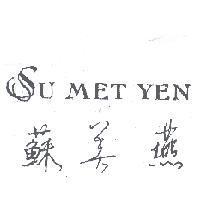 SU MET YEN
蘇美燕